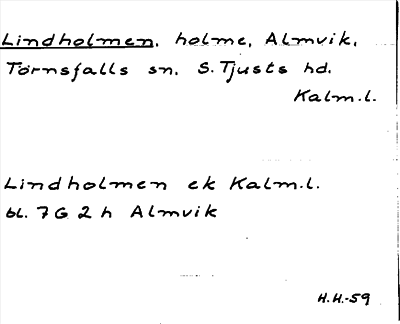 Lindholmen, holme, Almvik,
Törnsfalls sn. S. Tjusts hd.
Kalm.l.
Lindholmen ek Kalm.l.
bl. 7G 2h Almvik
H.H.-59